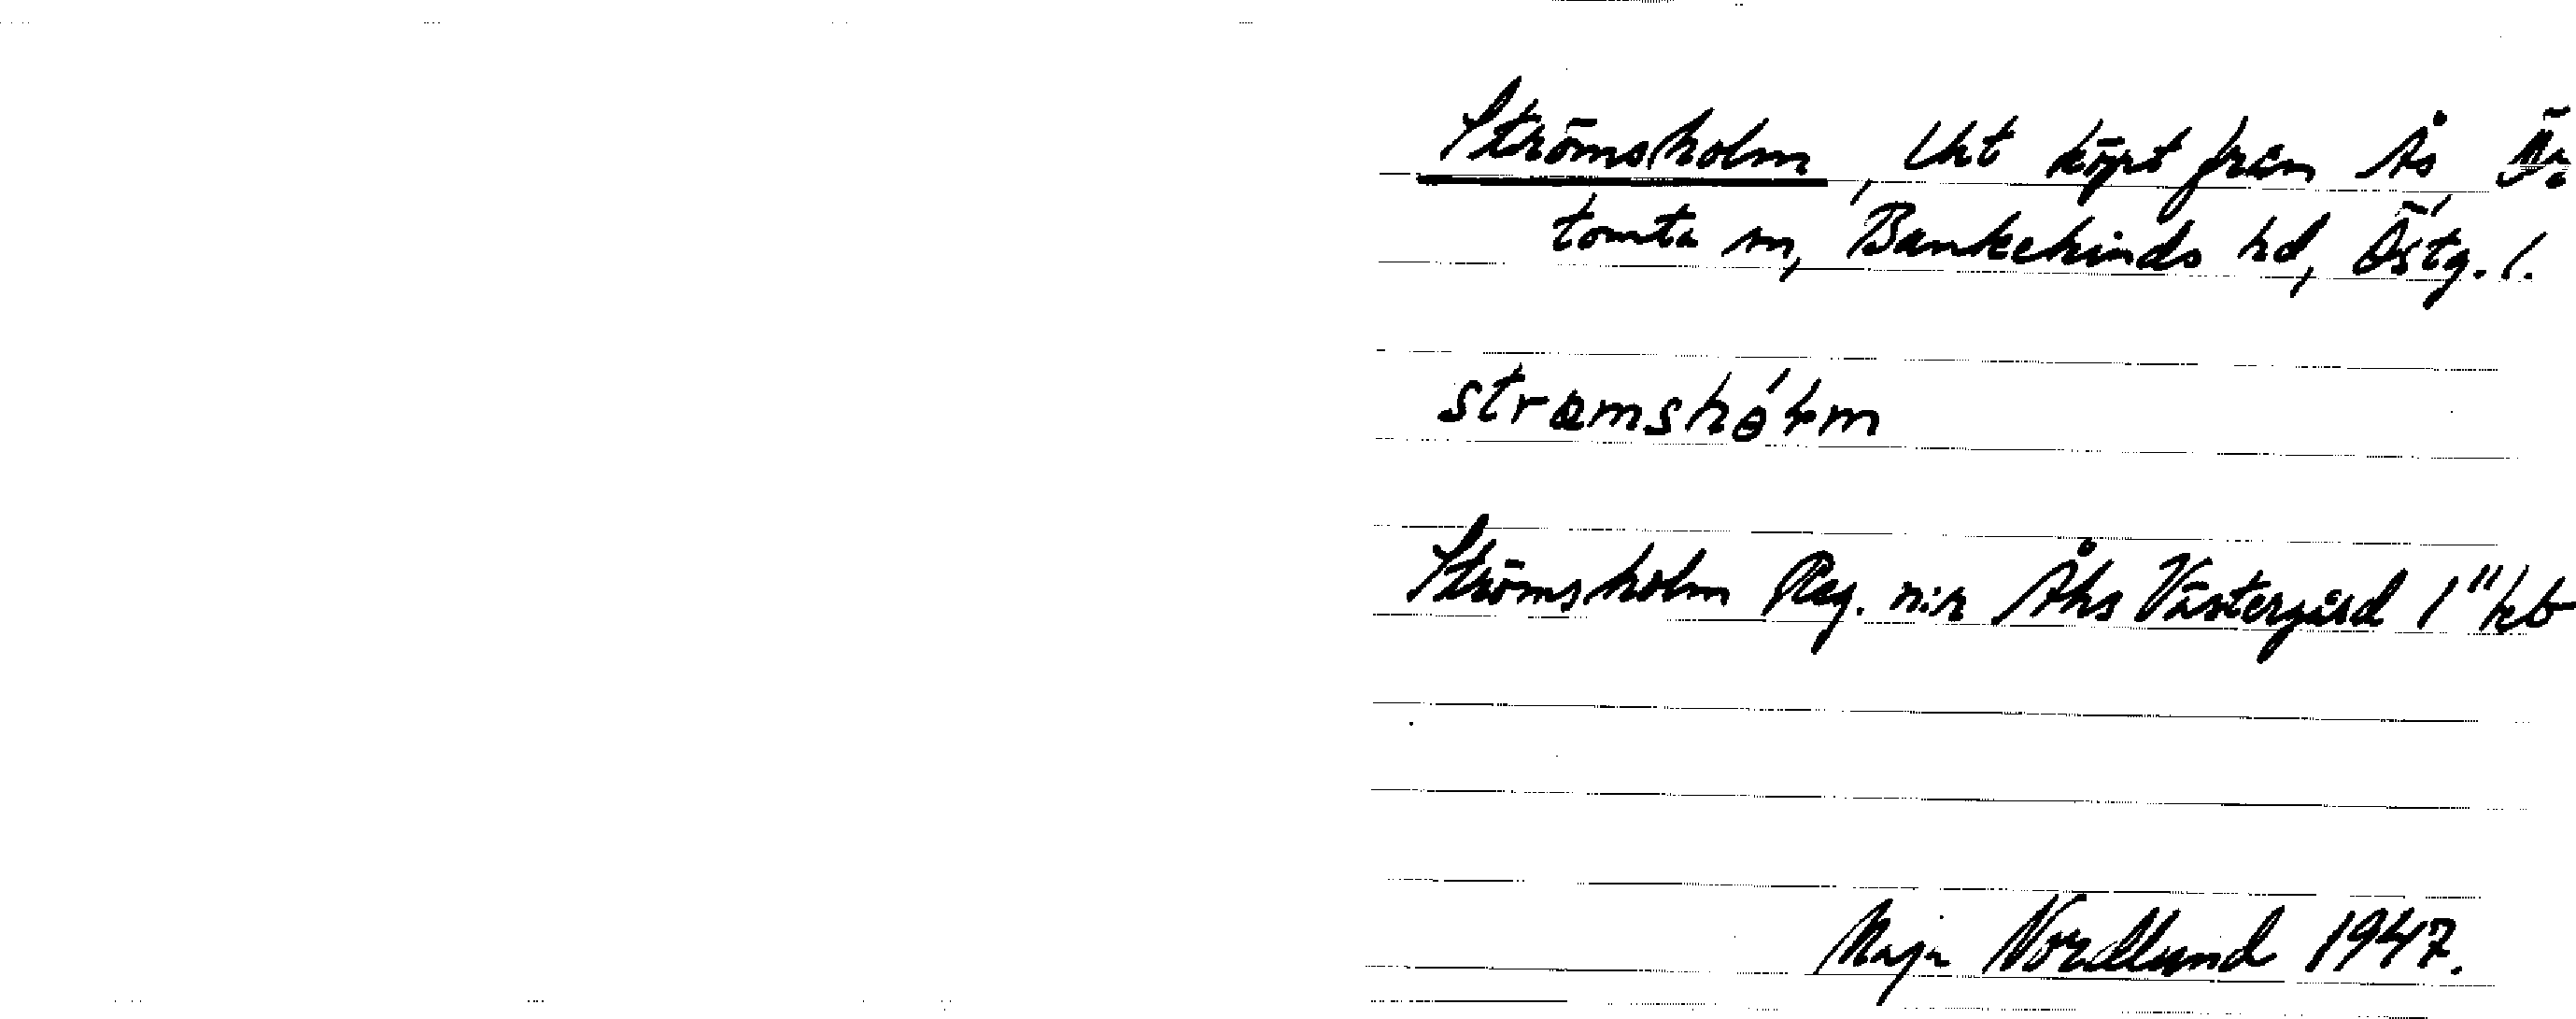 Strömsholm, Urt köpt från Ås Ör
tomta sn, Bankekinds hd, Östg. l.
strømshóɫm
Strömsholm Reg. nr Åhs Västergård 1" hb
Maja Nordlund 1947.